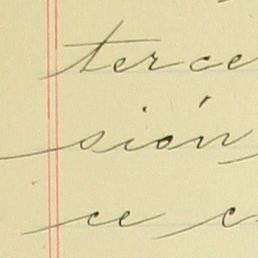 terce
sión
ce c